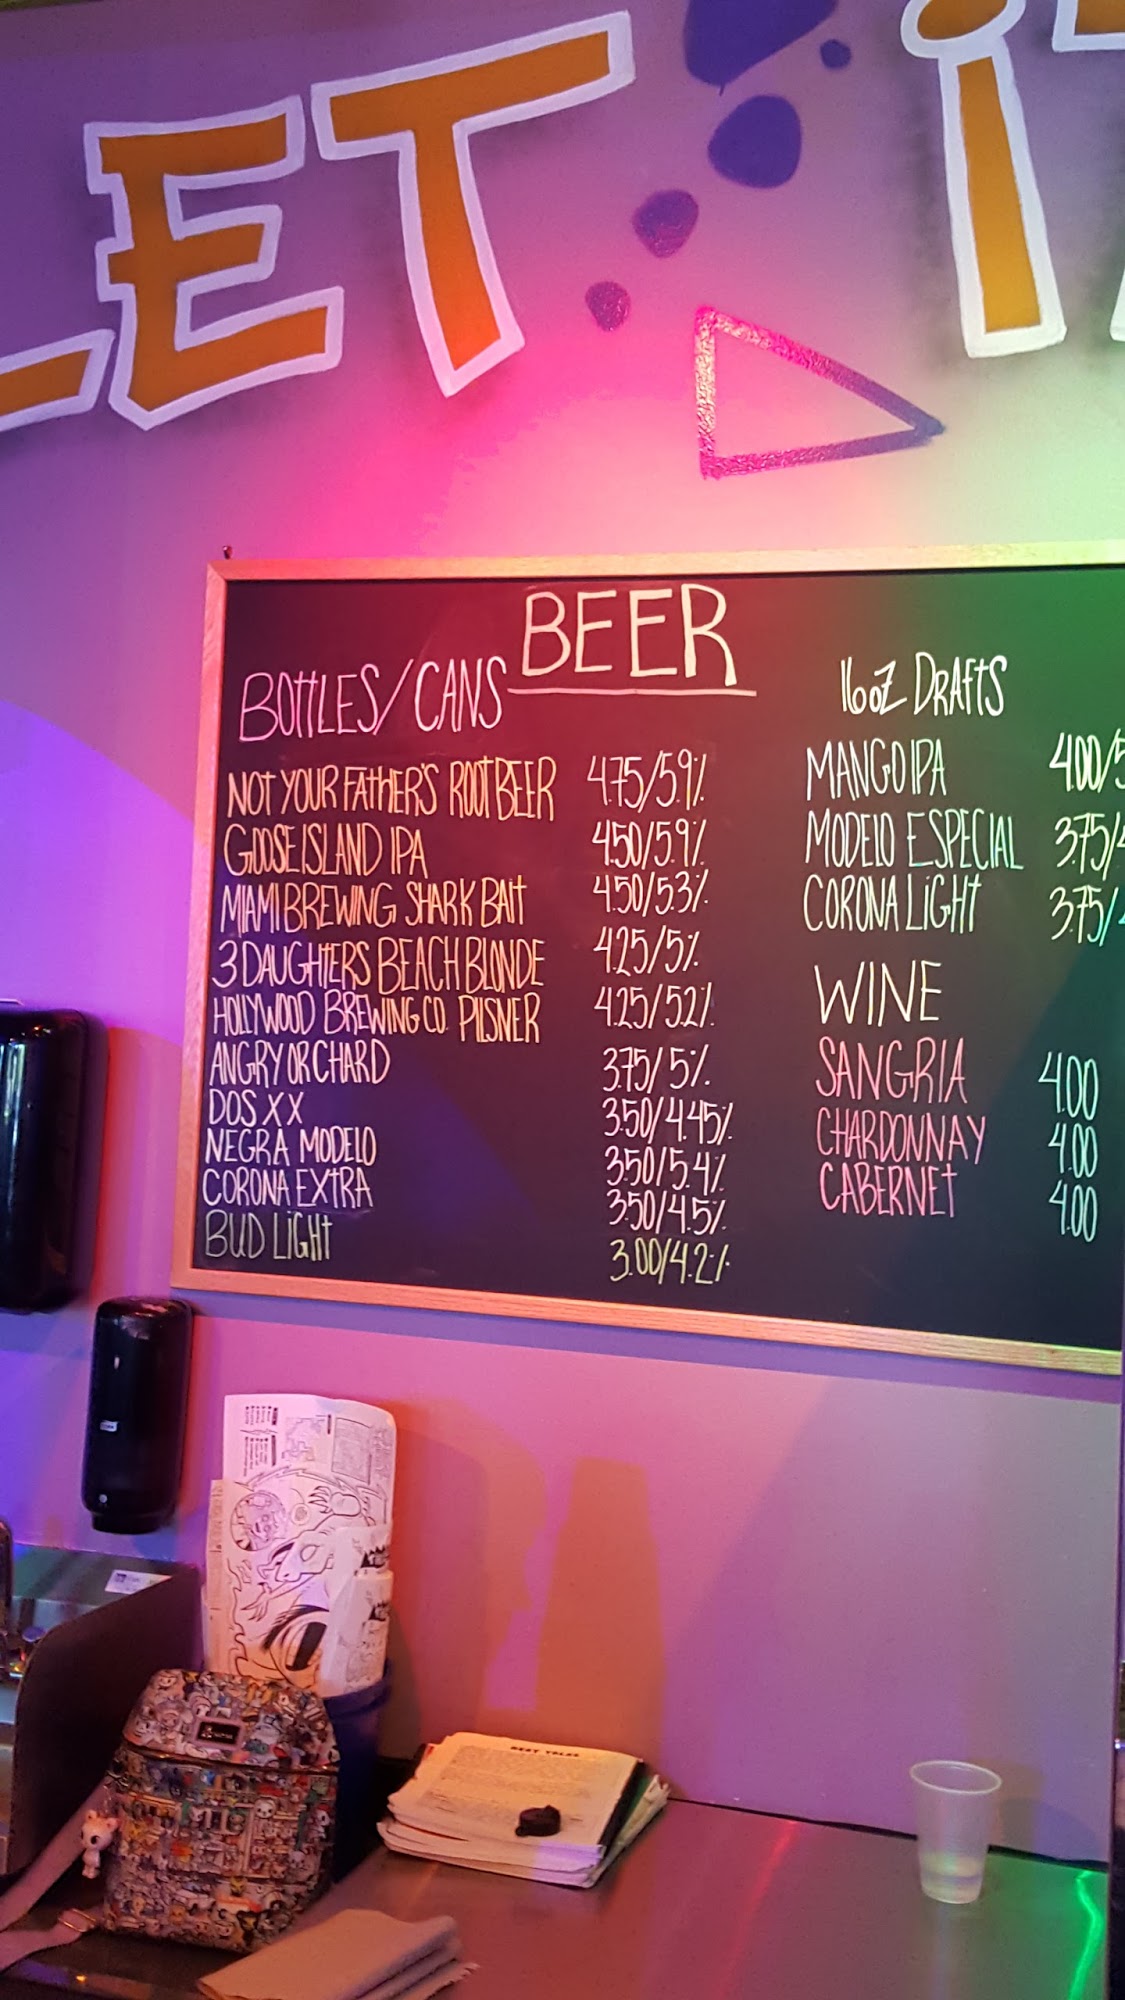 LET iT
BEER
BOTTLES/CANS
NOT YOUR FATHER'S ROOT BEER 4.75/5.9%
GOOSE ISLAND IPA 4.50/5.9%
MIAMI BREWING SHARK BAIT 4.50/5.3%
3 DAUGHTERS BEACH BLONDE 4.25/5%
HOLLYWOOD BREWING CO. PILSNER 4.25/5.2%
ANGRY ORCHARD 3.75/5%
DOS XX 3.50/4.45%
NEGRA MODELO 3.50/5.4%
CORONA EXTRA 3.50/4.5%
BUD LiGHT 3.00/4.2%
16oZ DRAFTS
MANGO IPA 4.00/5
MODELO ESPECIAL 3.75/4
CORONA LiGHT 3.75/4
WINE
SANGRIA 4.00
CHARDONNAY 4.00
CABERNET 4.00